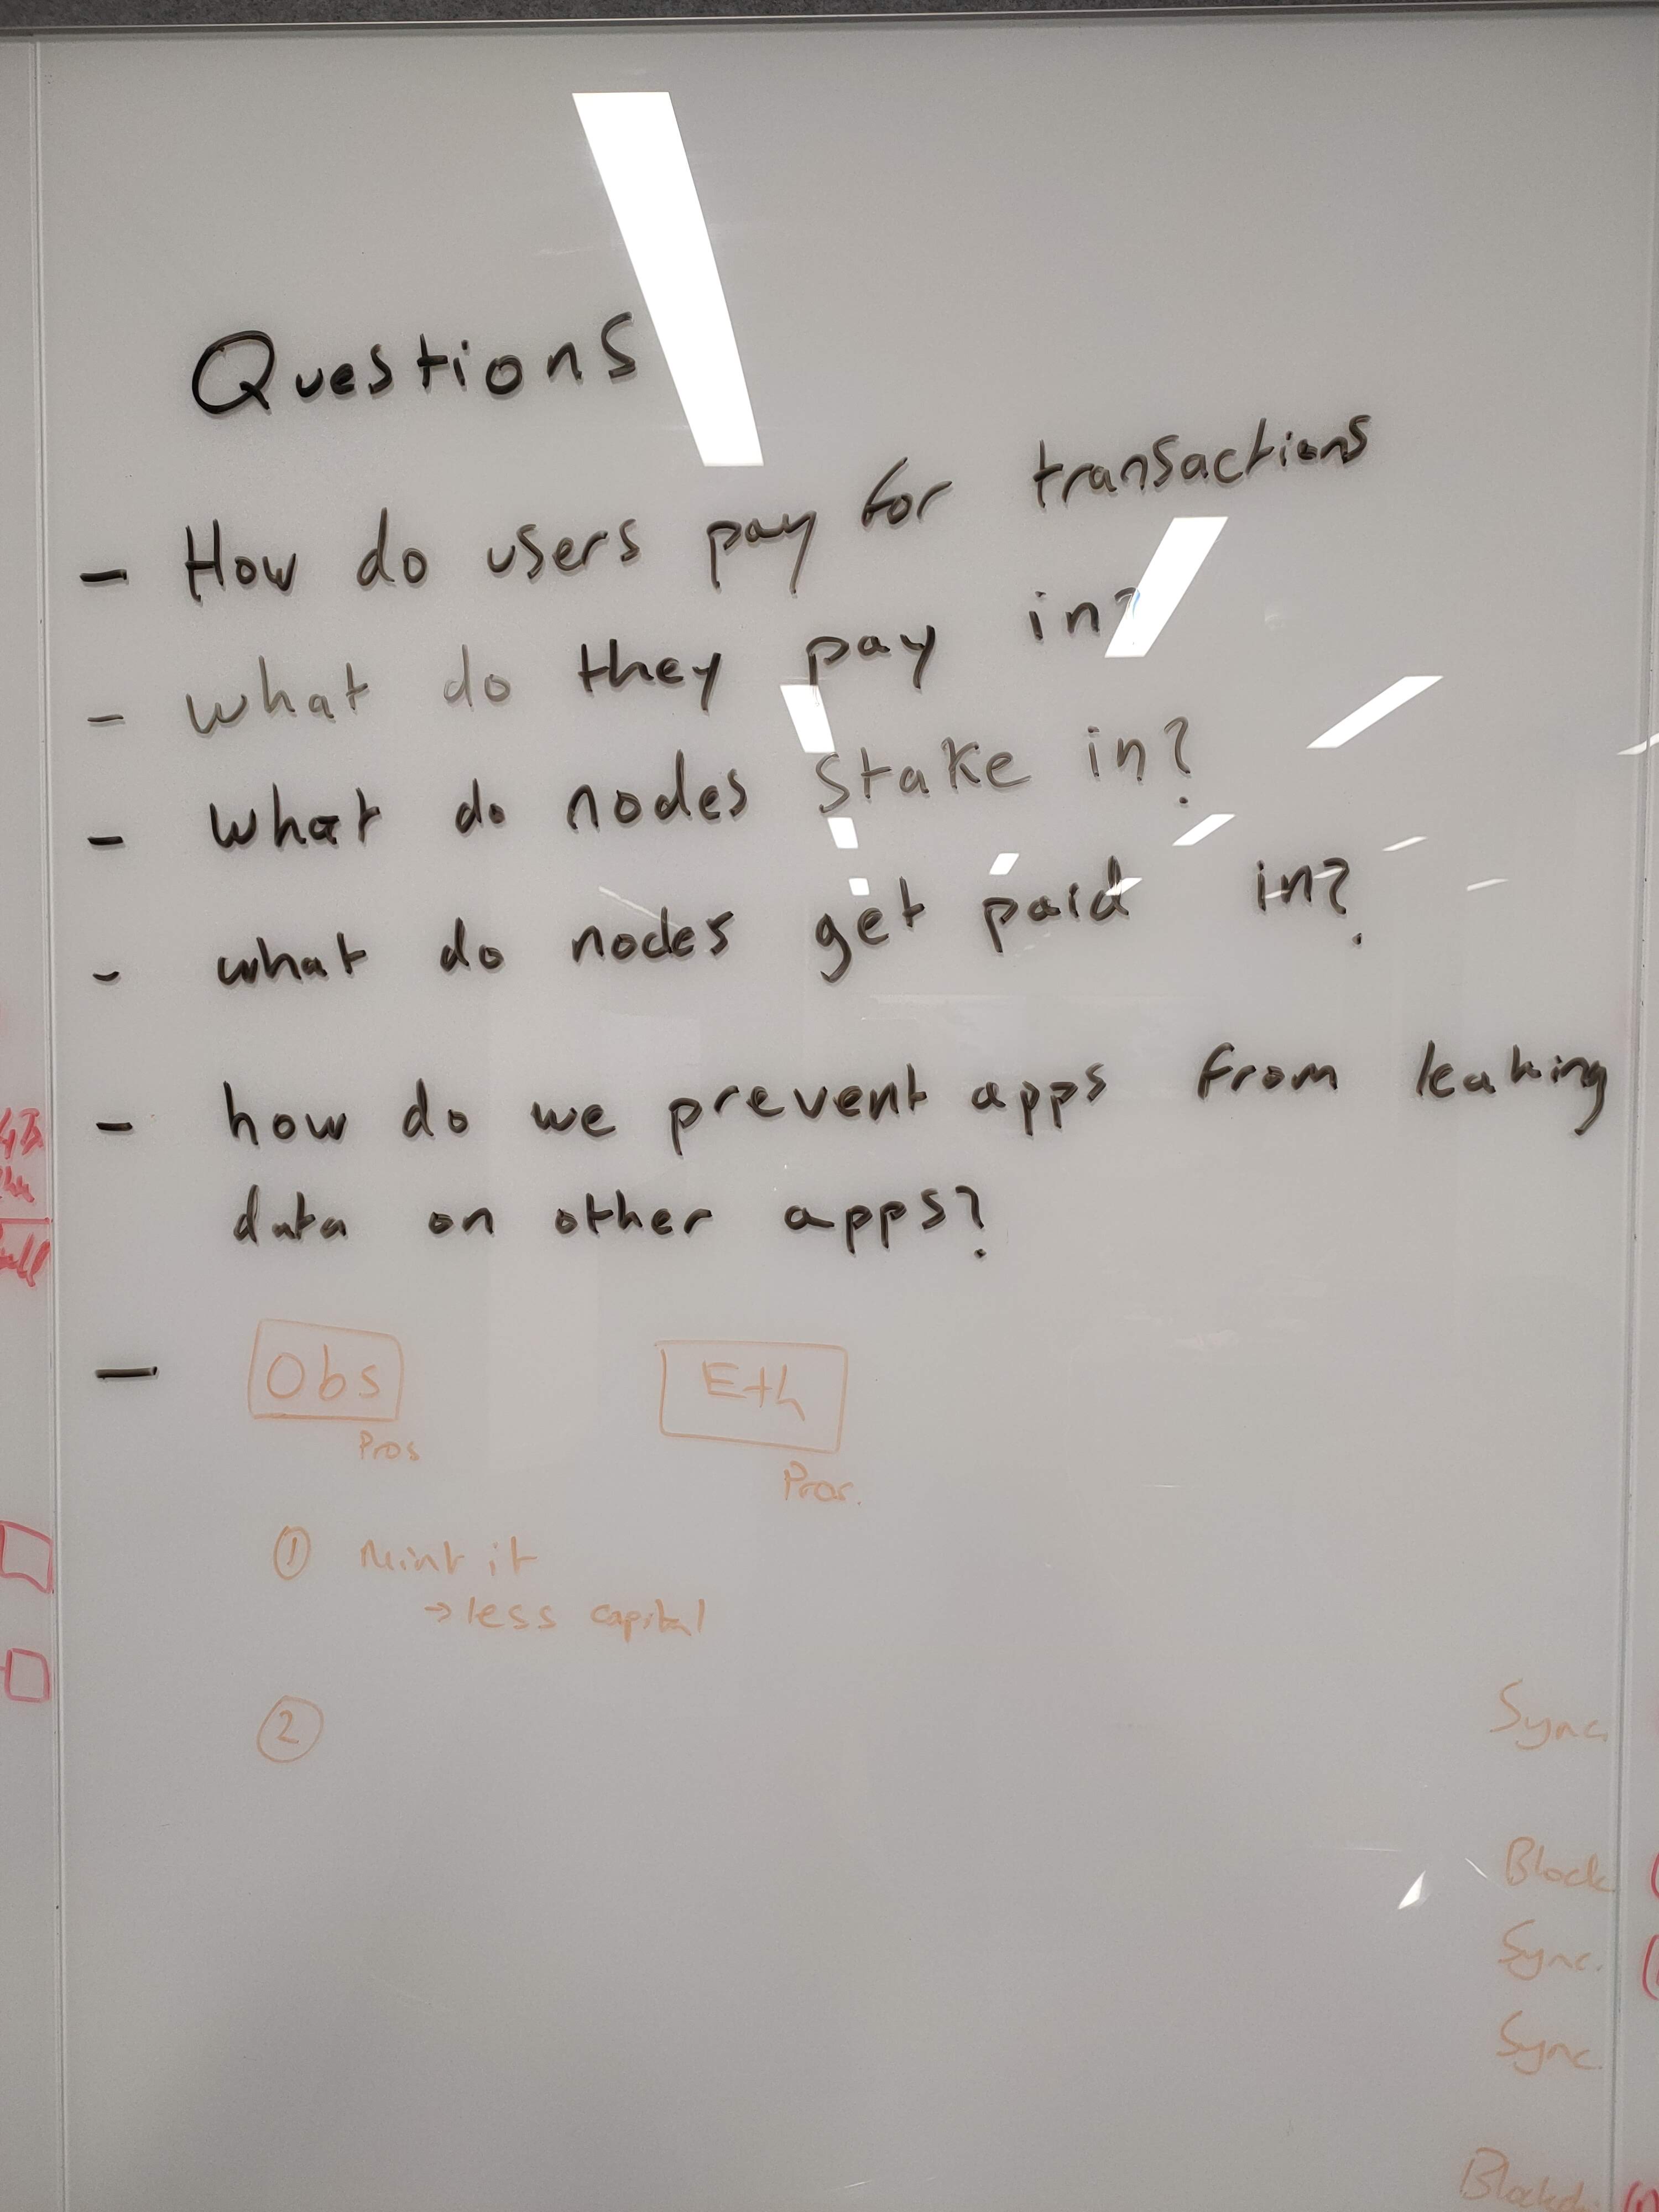 Questions
- How do users pay for transactions
- what do they pay in?
- what do nodes stake in?
- what do nodes get paid in?
- how do we prevent apps from leaking
data on other apps?
-
Obs Eth
Pros Pros.
① Mint it
→ less capital
②
Sync
Block
Sync.
Sync